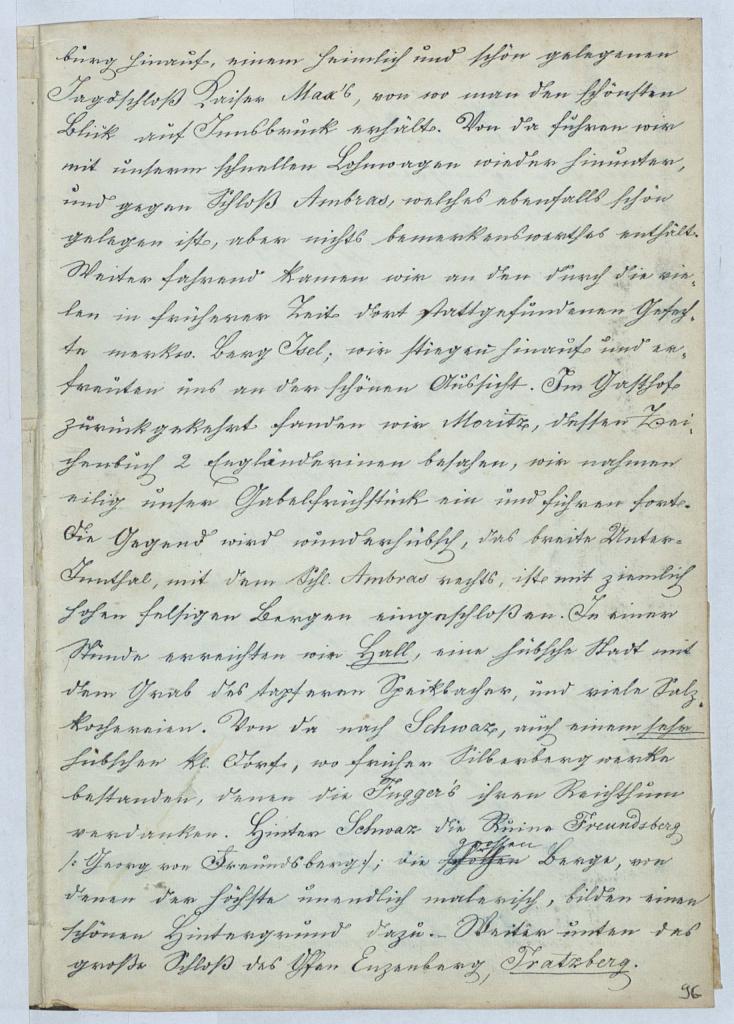 burg hinauf, einem heimlich und schön gelegenen
Jagdschloß Kaiser Max's, von wo man den schönsten
Blick auf Innsbruck erhält. Von da fuhren wir
mit unserm schnellen Lohnwagen wieder hinunter,
und gegen Schloß Ambras, welches ebenfalls schön
gelegen ist, aber nichts bemerkenswerthes enthält.
Weiter fahrend kamen wir an den durch die vie-
len in früherer Zeit dort stattgefundenen Gefech-
te merkw. Berg Isel; wir stiegen hinauf und er-
freuten uns an der schönen Aussicht. Im Gasthof
zurückgekehrt fanden wir Moritz, dessen Zei-
chenbuch 2 Engländerinen besahen, wir nahmen
eilig unser Gabelfrühstück ein und fuhren fort.
Die Gegend wird wunderhübsch, das breite Unter-
Innthal, mit dem Schl. Ambras rechts, ist mit ziemlich
hohen felsigen Bergen eingeschloßen. In einer
Stunde erreichten wir Hall, eine hübsche Stadt mit
dem Grab des tapferen Speikbacher, und viele Salz-
kochereien. Von da nach Schwaz, auch einem sehr
hübschen kl. Dorf, wo früher Silberbergwerke
bestanden, denen die Fugger's ihren Reichthum
verdanken. Hinter Schwaz die Ruine Freundsberg
/: Georg von Freundsberg :/; die großen Berge, von
denen der höchste unendlich malerisch, bilden einen
schönen Hintergrund dazu. – Weiter unten das
große Schloß des Gfen Enzenberg, Tratzberg.
96